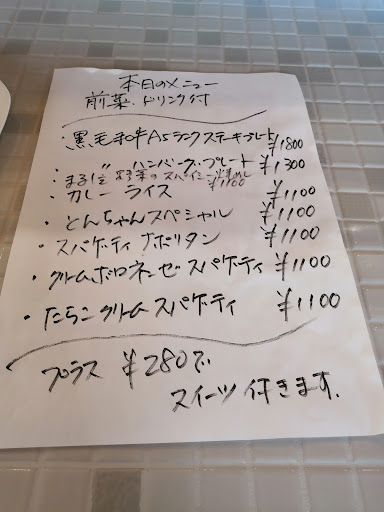 本日のメニュー
前菜.ドリンク付
・黒毛和牛A5ランクステーキプレート ¥1800
・ 〃 ハンバーグ・プレート ¥1300
・まるごと野菜のスパイシー ¥1100
・カレーライス ¥1100
・とんちゃんスペシャル ¥1100
・スパゲッティナポリタン ¥1100
・クリームボロネーゼスパゲッティ ¥1100
・たらこクリームスパゲッティ ¥1100
プラス ¥280で
スイーツ付きます.